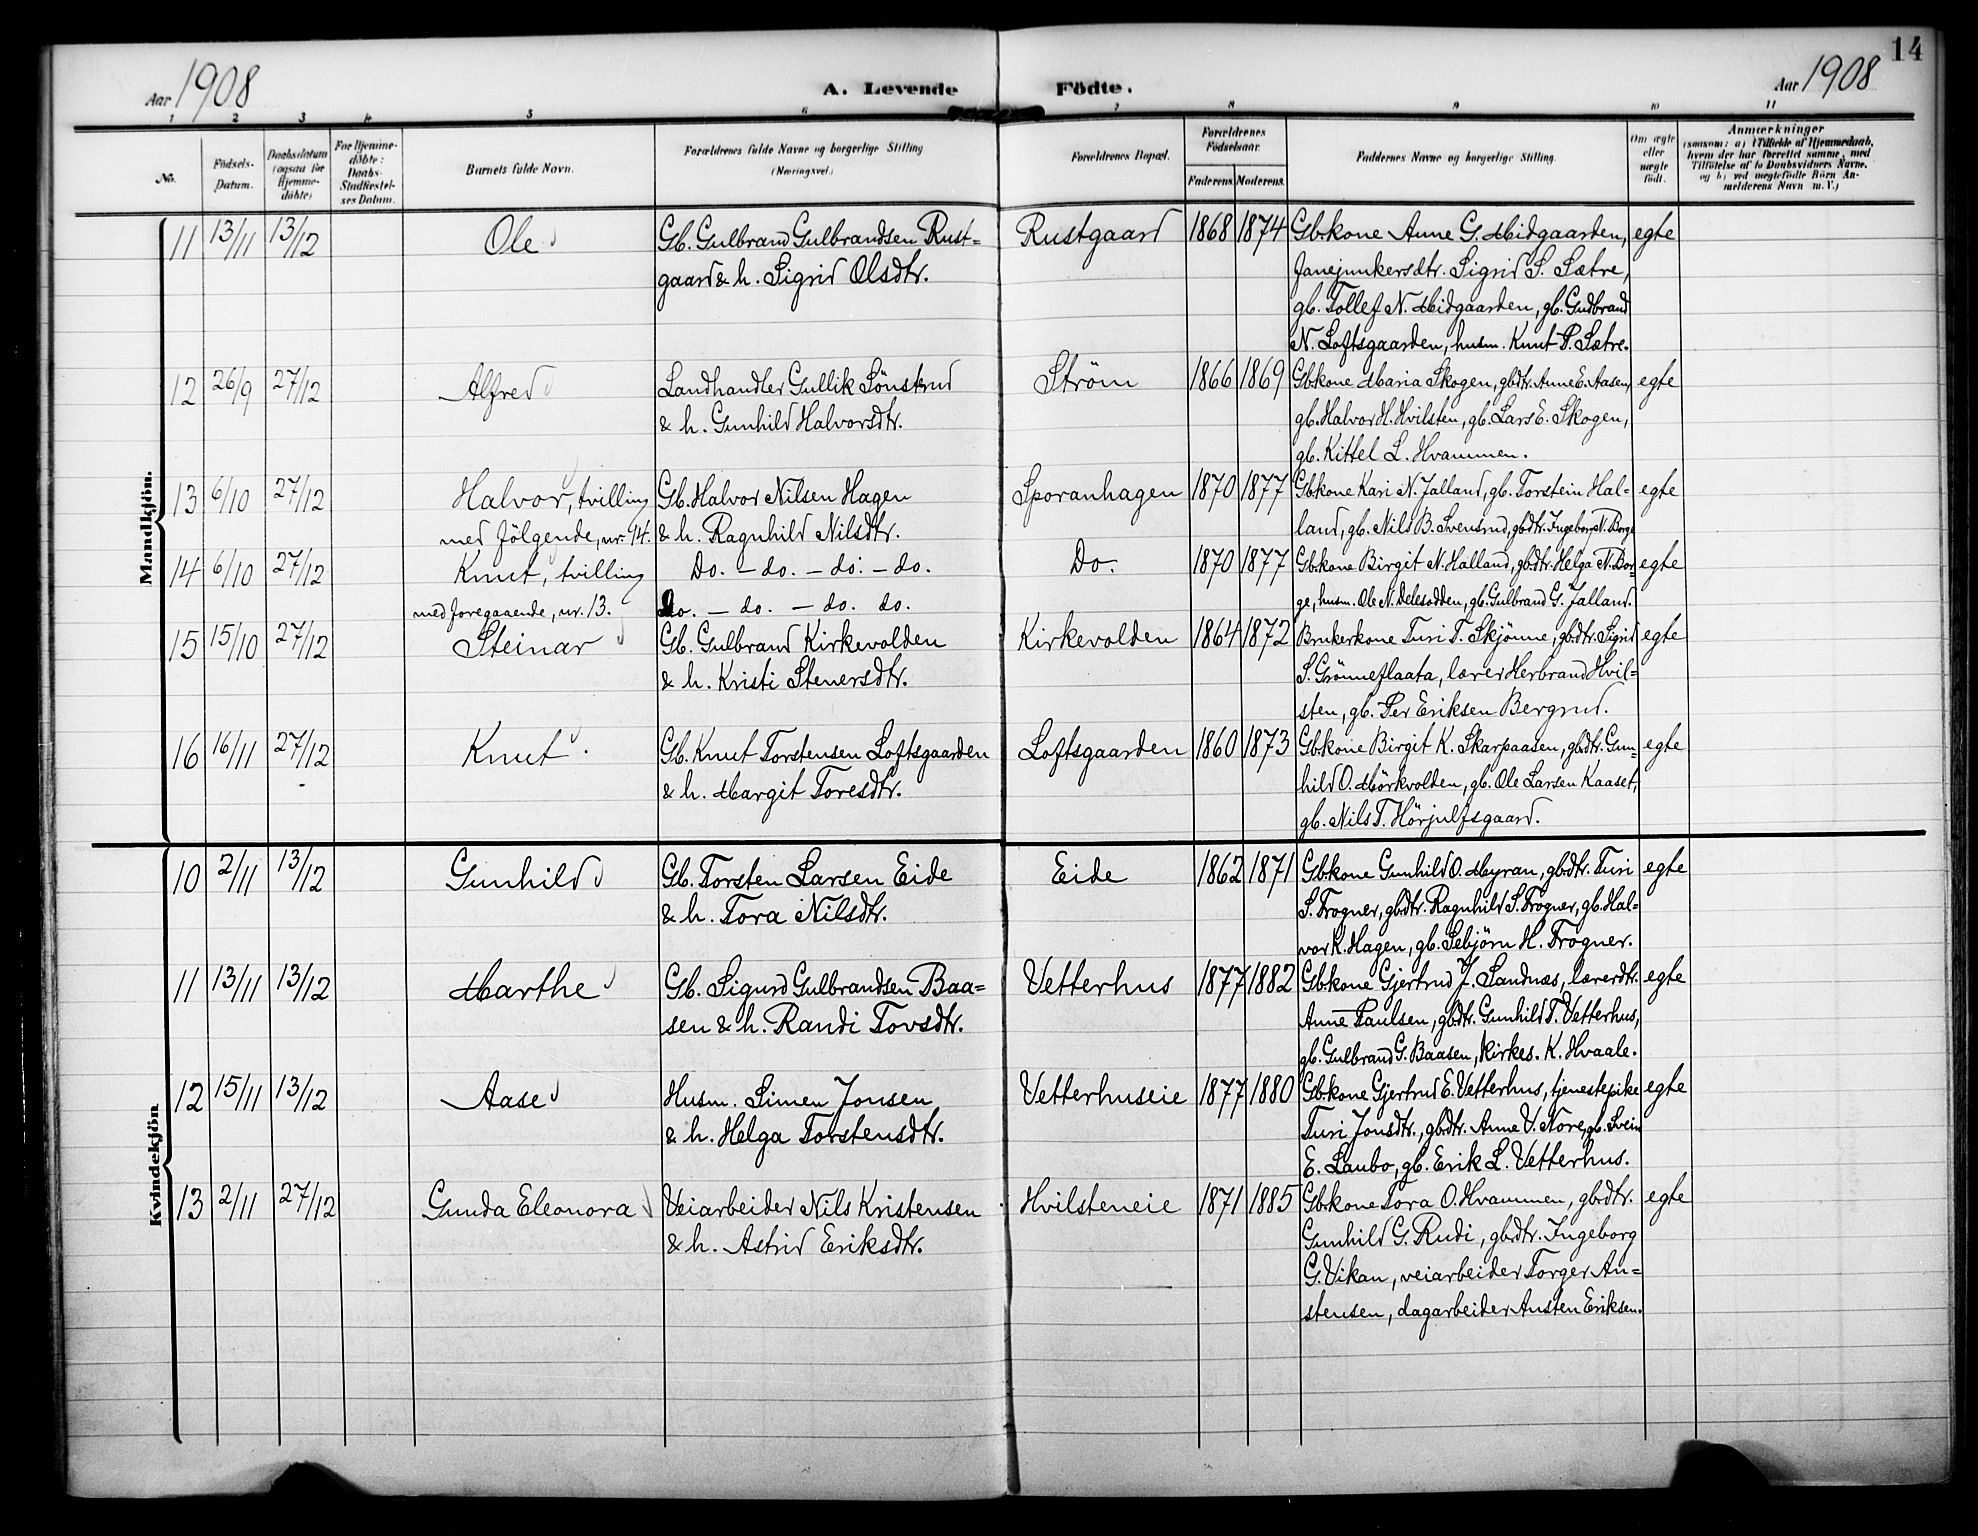 14
Aar 1908
A. Levende Födte.
Aar 1908
1 2 3 4 5 6 7 8 9 10 11
No.
Födsels-Datum.
Daabsdatum (ogsaa for Hjemme-döbte)
For Hjemme-döbte: Daabs-Stadfæstel-ses Datum.
Barnets fulde Navn.
Forældrenes fulde Navne og borgerlige Stilling
(Næringsvei.)
Forældrenes Bopæl.
Forældrenes Födselsaar.
Faderens. Moderens.
Faddernes Navne og borgerlige Stilling.
Om ægte eller uægte födt.
Anmærkninger
(saasom: a) i Tilfælde af Hjemmedaab,
hvem der har forrettet samme, med
Tilföielse af to Daabsvidners Navne,
og b) ved uægtefödte Börn An-
melderens Navn m. V.)
Mandkjön.
11 13/11 13/12 Ole Gb. Gulbrand Gulbrandsen Rust= Rustgaard 1868 1874 Gbkone Anne G. Midgaarden, egte
gaard & h. Sigrid Olsdtr. Fanejunkersdtr. Sigrid S. Sætre,
gb. Tollef N. Midgaarden, gb. Gudbrand
N. Loftsgaarden, husm. Knut P. Sætre.
12 26/9 27/12 Alfred Landhandler Gullik Sönsterud Ström 1866 1869 Gbkone Maria Skogen, gbdtr. Anne E. Aasen, egte
& h. Gunhild Halvorsdtr. gb. Halvor H. Hvilsten, gb. Lars E. Skogen,
gb. Kittel L. Hvammen.
13 6/10 27/12 Halvor, tvilling Gb. Halvor Nilsen Hagen Sporanhagen 1870 1877 Gbkone Kari N. Jalland, gb. Torstein Hal= egte
med fölgende, nr. 14. & h. Ragnhild Nilsdtr. land, gb. Nils B. Svensrud, gbdtr. Ingeborg N. Borge
14 6/10 27/12 Knut, tvilling Do. – do. – do. – do. Do. 1870 1877 Gbkone Birgit N. Halland, gbdtr. Helga N. Bor= egte
med foregaaende, nr. 13. Do. – do. – do. do. ge, husm. Ole N. Delesodden, gb. Gulbrand G. Jalland.
15 15/10 27/12 Steinar Gb. Gulbrand Kirkevolden Kirkevolden 1864 1872 Brukerkone Turi T. Skjönne, gbdtr. Sigrid egte
& h. Kristi Stenersdtr. S. Grönneflaata, lærer Herbrand Hvil=
sten, gb. Per Eriksen Bergrud.
16 16/11 27/12 Knut. Gb. Knut Torstensen Loftsgaarden Loftsgaarden 1860 1873 Gbkone Birgit K. Skarpaasen, gbdtr. Gun= egte
& h. Margit Toresdtr. hild O. Mörkvolden, gb. Ole Larsen Kaaset,
gb. Nils T. Hörjulfsgaard.
Kvindekjön
10 2/11 13/12 Gunhild Gb. Torsten Larsen Eide Eide 1862 1871 Gbkone Gunhild O. Myran, gbdtr. Turi egte
& h. Tora Nilsdtr. S. Frogner, gbdtr. Ragnhild S. Frogner, gb. Hal=
vor K. Hagen, gb. Sebjörn H. Frogner.
11 13/11 13/12 Marthe Gb. Sigurd Gulbrandsen Baa= Vetterhus 1877 1882 Gbkone Gjertrud J. Sandnæs, lærerdtr. egte
sen & h. Randi Tovsdtr. Anne Paulsen, gbdtr. Gunhild T. Vetterhus,
gb. Gulbrand G. Baasen, kirkes. K. Hvaale.
12 15/11 13/12 Aase Husm. Simen Jonsen Vetterhuseie 1877 1880 Gbkone Gjertrud E. Vetterhus, tjenestepike egte
& h. Helga Torstensdtr. Turi Jonsdtr., gbdtr. Anne V. Nore, gb. Svein
E. Laubo, gb. Erik L. Vetterhus.
13 2/11 27/12 Gunda Eleonora Veiarbeider Nils Kristensen Hvilsteneie 1871 1885 Gbkone Tora O. Hvammen, gbdtr. egte
& h. Astrid Eriksdtr. Gunhild G. Rudi, gbdtr. Ingeborg
G. Vikan, veiarbeider Torger An=
stensen, dagarbeider Austen Eriksen.